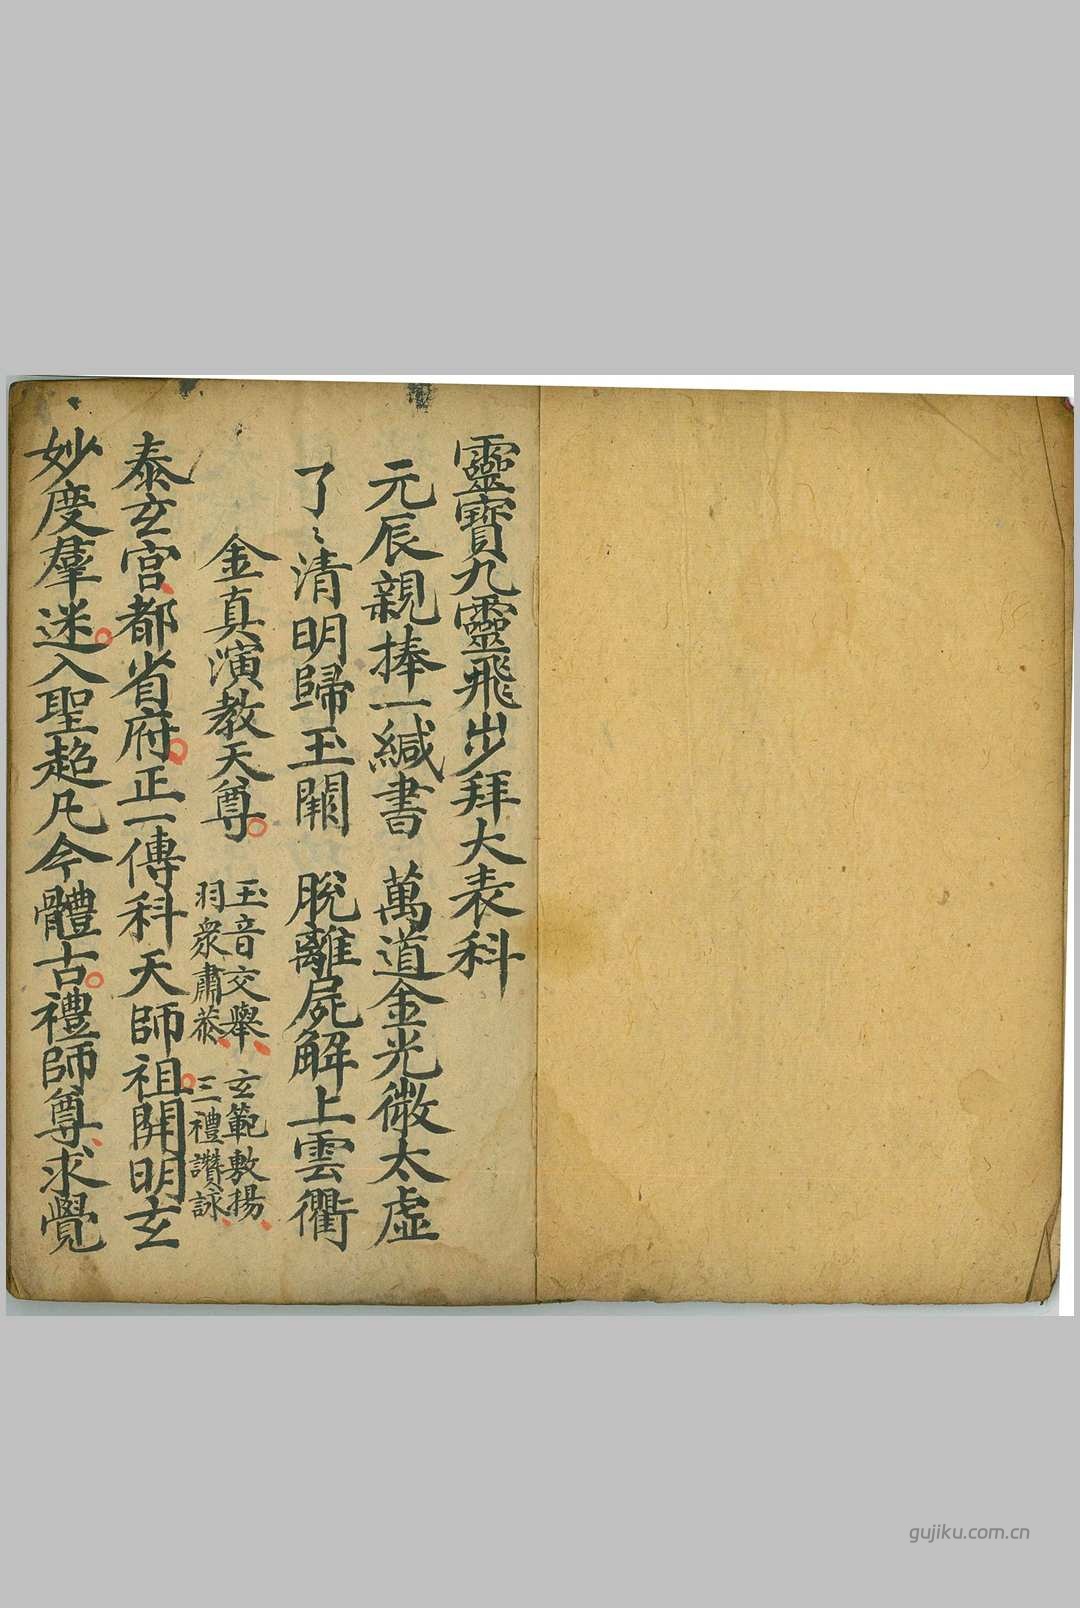 靈寶九靈飛步拜大表科
元辰親捧一緘書　萬道金光徹太虛
了〻清明歸玉闕　脫離屍解上雲衢
金真演教天尊
玉音交舉　玄範敷揚
羽衆肅恭　三禮讚詠
泰玄宮都省府正一傳科天師祖開明玄
妙度羣迷入聖超凡今體古禮師尊求覺
gujiku.com.cn